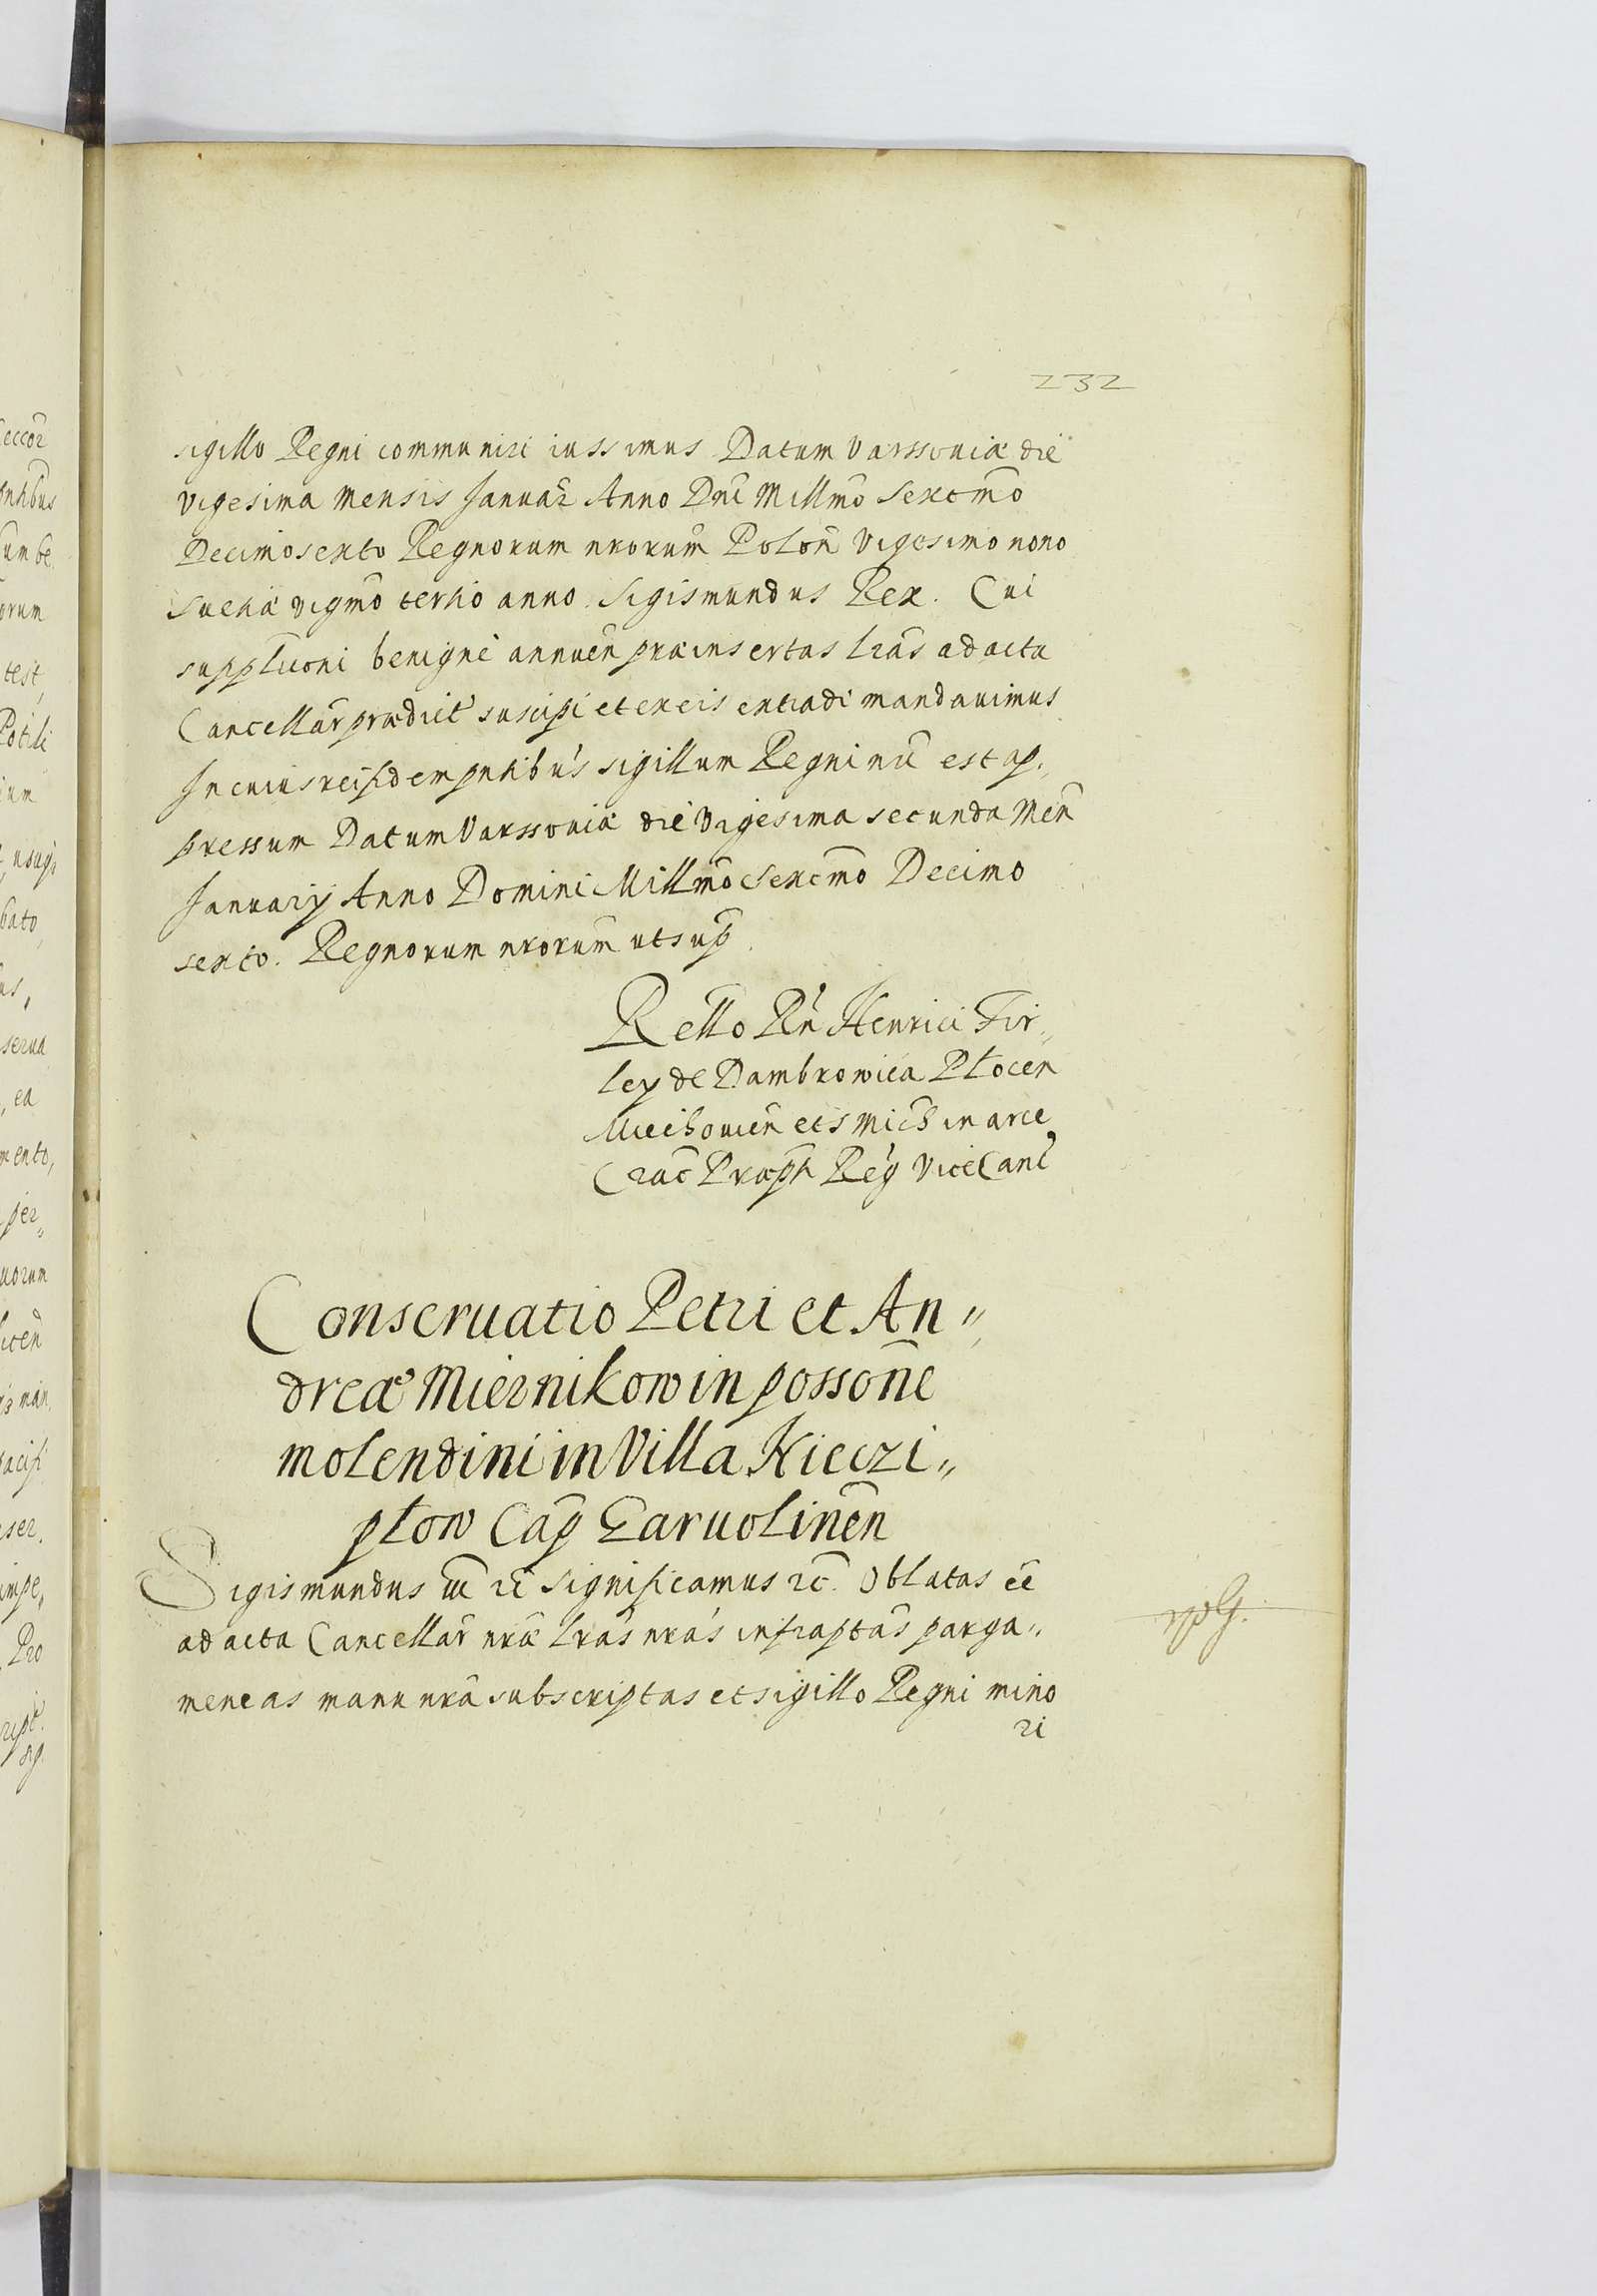 232
sigillo Regni communiri iussimus Datum Varssoviæ die
vigesima mensis Januar Anno Dni Millmo Sexcmo
Decimosexto Regnorum nrorum Polon Vigesimo nono
Sueciæ vigmo tertio anno. Sigismundus Rex. Cui
suppliconi benignè annuen præinsertas lras ad acta
Cancellar prædict suscipi et ex eis extradi mandauimus
In cuius rei fidem pntibus sigillum Regni nri est ap„
pressum Datum Varssoviæ die Vigesima secunda Men
January Anno Domini Millmo Sexcmo Decimo
sexto. Regnorum nrorum ut sup.
Rello Rn Henrici Fir„
ley de Dambrowica Plocen
Miechouien et S Mich in arce
Crac Præpti Reg ViceCanc
Conseruatio Petri et An„
dreæ Miernikow in possone
molendini in Villa Kieczi„
plow Cap Garuolinen
Sigismundus III rc Significamus rc. Oblatas ee
ad acta Cancellar nræ lras nras infraptas parga„
meneas manu nra subscriptas et sigillo Regni mino
ri